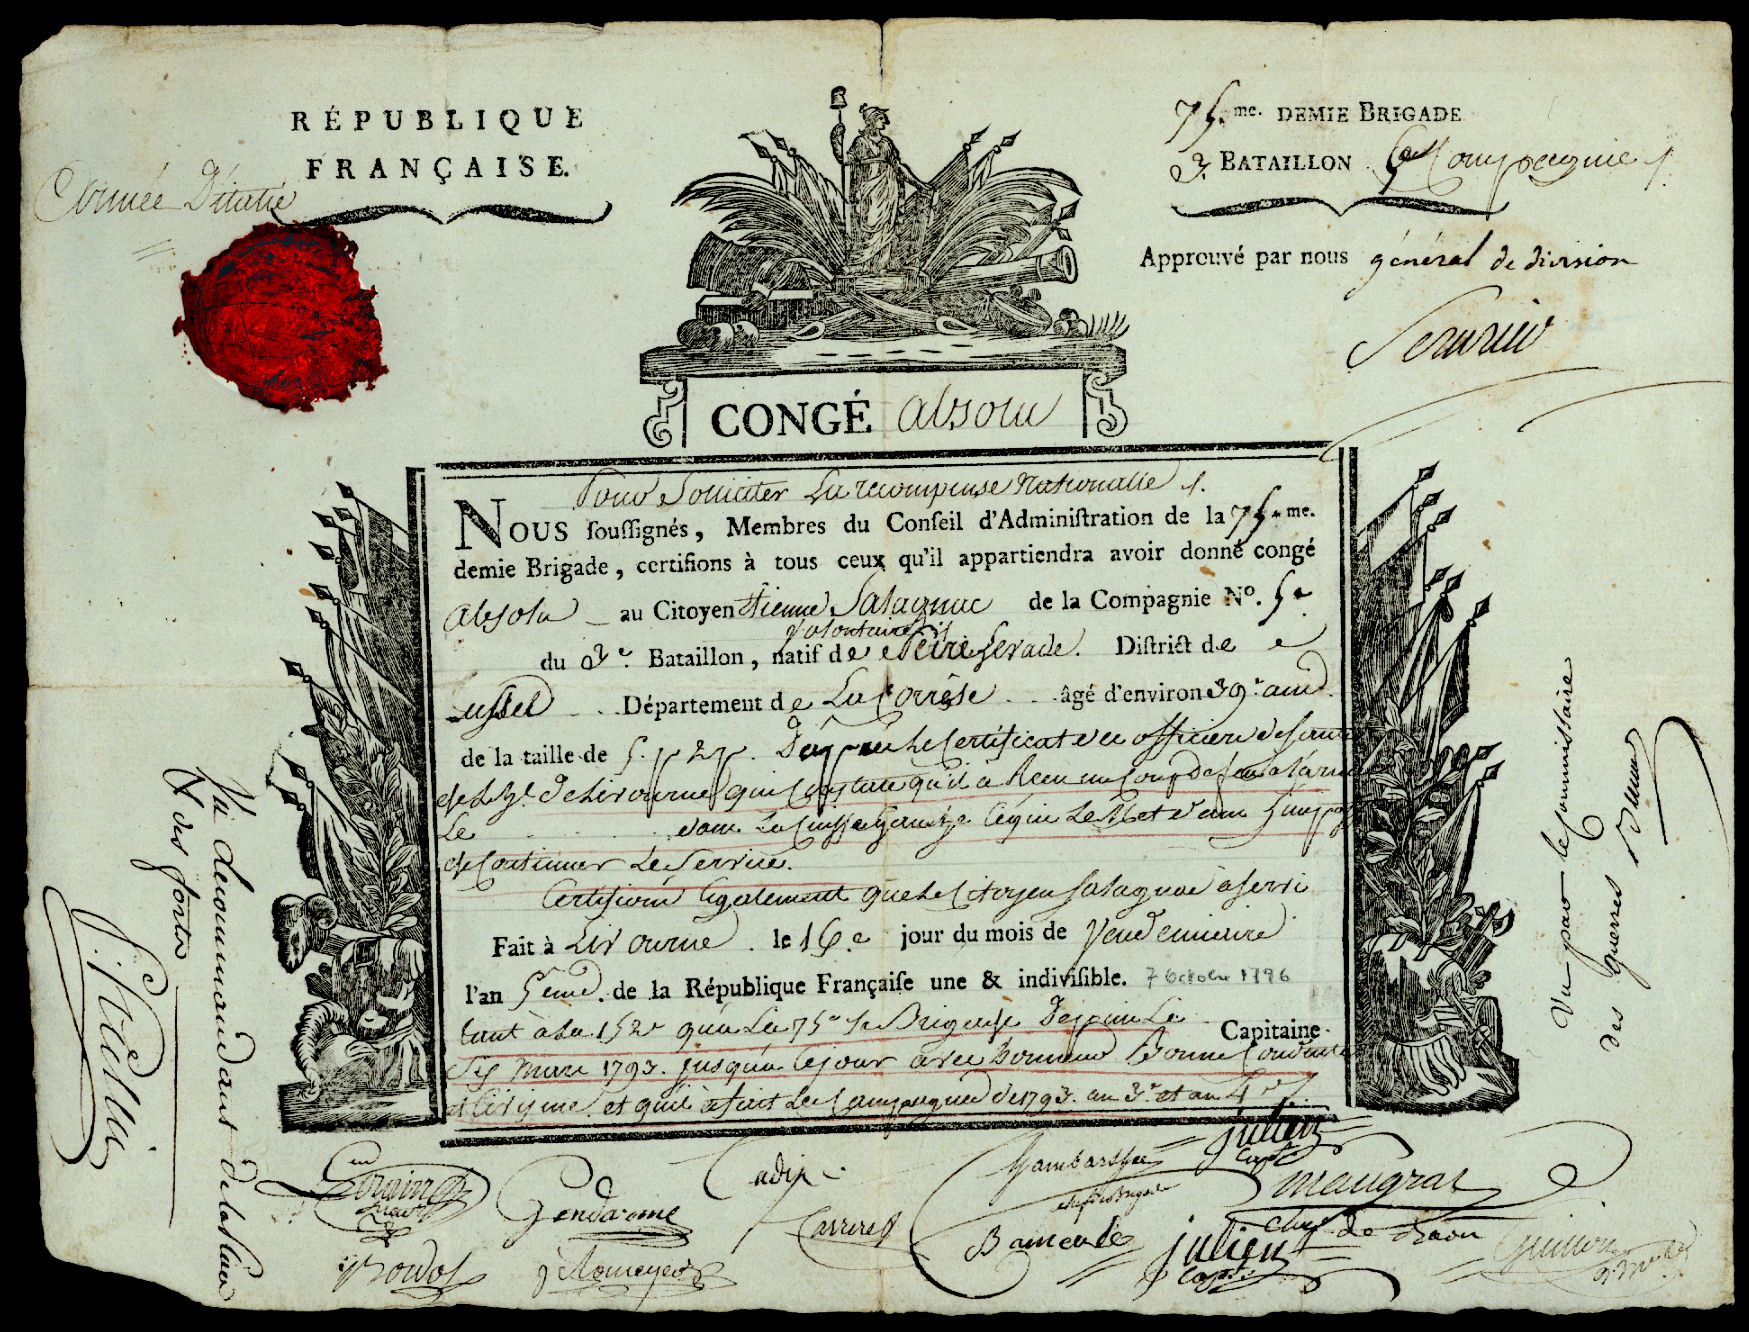 RÉPUBLIQUE
FRANÇAISE.
Armée D'italie
75.me. DEMIE BRIGADE
2. BATAILLON. 5e Compagnie
Approuvé par nous général de division
Serurier
CONGÉ absolu
Pour Solliciter La recompense Nationalle
NOUS souſſignés, Membres du Conſeil d'Adminiſtration de la 75.me.
demie Brigade, certifions à tous ceux qu'il appartiendra avoir donné congé
absolu au Citoyen Etienne Salagnac de la Compagnie No. 5e
volontaire
du 2e. Bataillon, natif de Peire Levade. Diſtrict de
ussel Département de La Corrèse âgé d'environ 39 ans
de la taille de 5. p 2 p. D'après le Certificat des officiers de santé
de Livourne qui constate qu'il a Reçu un Coup de feu
Le dans La Cuisse Gauche
de Continuer Le Service.
Certifions Egalement que le Citoyen Salagnac a servi
Fait à Livourne. le 16.e jour du mois de Vendemiaire
l'an 5eme. de la République Françaiſe une & indiviſible. 7 Octobre 1796
tant à la 152e qu'a La 75e 1/2 Brigade Depuis Le
Capitaine.
Six Mars 1793. jusqu'a Ce jour avec honneur Bonne Conduite
et Civisme. et qu'il a fait Les Campagnes de 1793. an 3e et an 4e
Vu par le Commissaire
des guerres
Vu Le Commandant de la place
& des forts
Gendarme
Cadix
Carrere
Bameule
julien
Capt.
Maugras
julien
Capt.